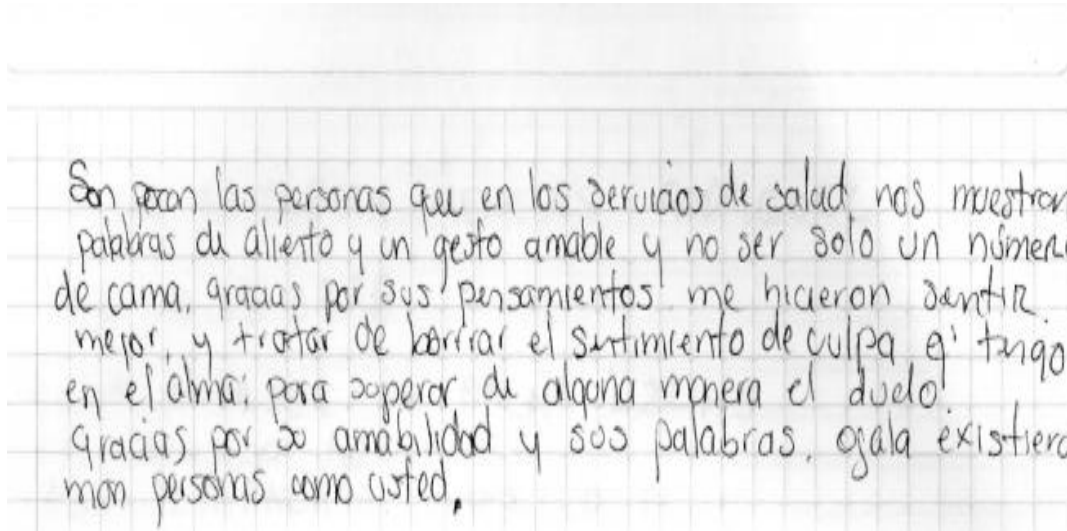 Son pocan las personas que en los servicios de salud nos muestran
palabras de aliento y un gesto amable y no ser solo un númer
de cama, gracias por sus pensamientos me hicieron sentir
mejor, y tratar de borrar el sentimiento de culpa q' tengo
en el alma; para superar de alguna manera el duelo.
Gracias por su amabilidad y sus palabras, ojala existiera
man personas como usted.